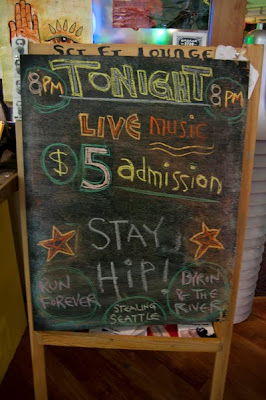 Sci Fi Lounge
8PM TONIGHT 8PM
LIVE MUSIC
$5 admission
STAY
HIP!
RUN
FOREVER
STEALING
SEATTLE
BYRON
& THE
RIVER